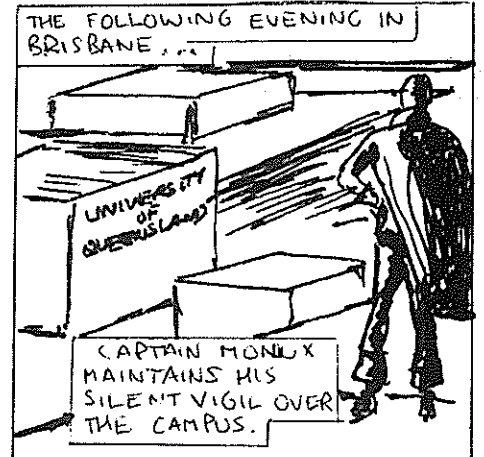 THE FOLLOWING EVENING IN
BRISBANE ...
UNIVERSITY
OF
QUEENSLAND
CAPTAIN MONUX
MAINTAINS HIS
SILENT VIGIL OVER
THE CAMPUS.